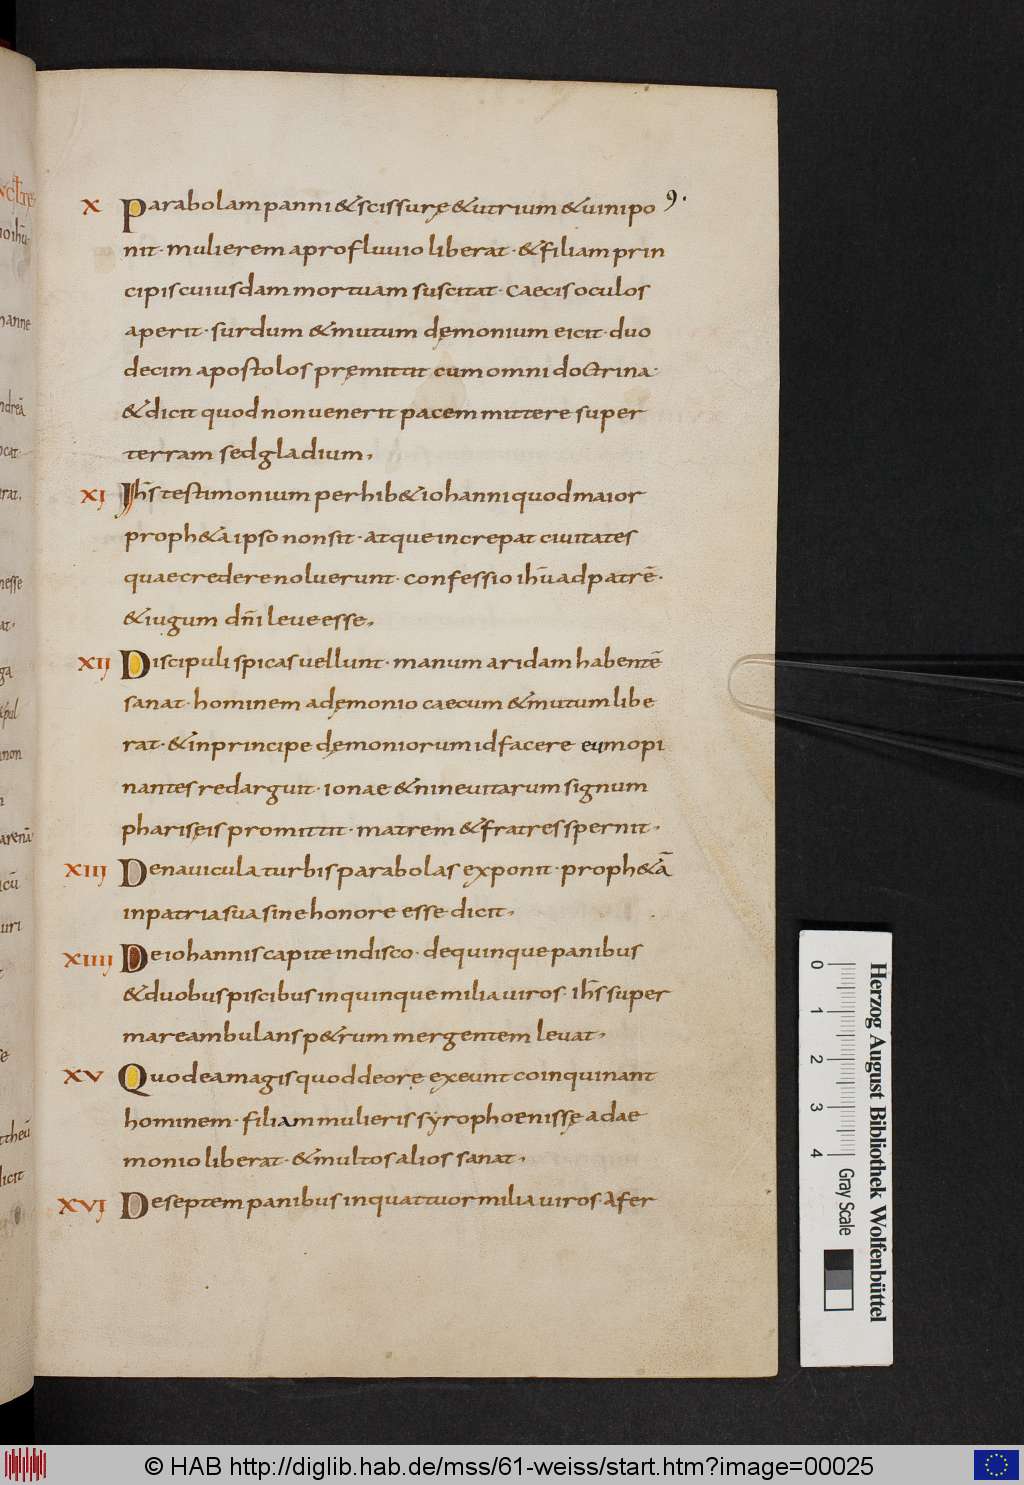 9.
X Parabolam panni & scissurę & utrium & uini po
nit · mulierem a profluuio liberat · & filiam prin
cipis cuiusdam mortuam suscitat · caecis oculos
aperit · surdum & mutum dęmonium eicit · duo
decim apostolos pręmittit cum omni doctrina ·
& dicit quod non uenerit pacem mittere super
terram sed gladium,
XI Ihs̄ testimonium perhib& iohanni quod maior
proph&a ipso non sit · atque increpat ciuitates
quae credere noluerunt · confessio ihū ad patrē ·
& iugum dn̄i leue esse,
XII Discipuli spicas uellunt · manum aridam habentē
sanat · hominem a dęmonio caecum & mutum libe
rat · & in principe dęmoniorum id facere eum opi
nantes redarguit · ionae & nineuitarum signum
pharisęis promittit · matrem & fratres spernit ·
XIII De nauicula turbis parabolas exponit · proph&ā
in patria sua sine honore esse dicit,
XIIII De iohannis capite in disco · de quinque panibus
& duobus piscibus in quinque milia uiros · ihs̄ super
mare ambulans p&rum mergentem leuat,
XV Quod ea magis quod de ore exeunt coinquinant
hominem · filiam mulieris syrophoenissę a dae
monio liberat · & multos alios sanat,
XVI De septem panibus in quattuor milia uiros · A fer
Herzog August Bibliothek Wolfenbüttel
0 1 2 3 4 Gray Scale
© HAB http://diglib.hab.de/mss/61-weiss/start.htm?image=00025